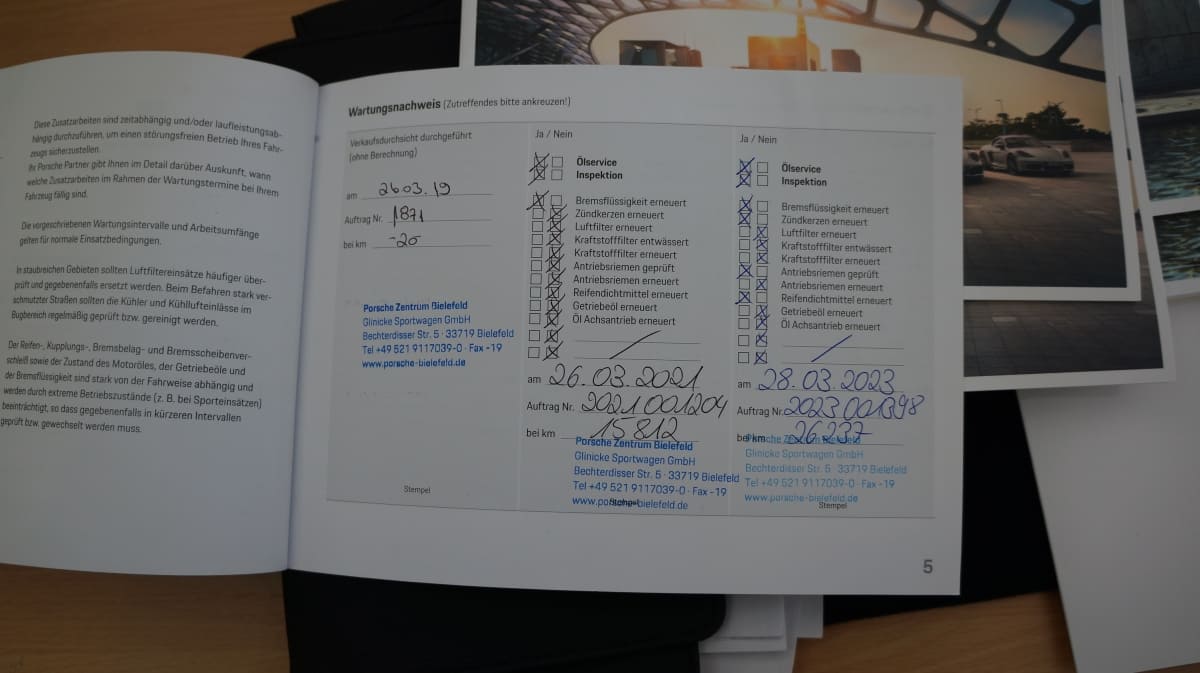 Diese Zusatzarbeiten sind zeitabhängig und/oder laufleistungsab-
hängig durchzuführen, um einen störungsfreien Betrieb Ihres Fahr-
zeugs sicherzustellen.
Ihr Porsche Partner gibt Ihnen im Detail darüber Auskunft, wann
welche Zusatzarbeiten im Rahmen der Wartungstermine bei Ihrem
Fahrzeug fällig sind.
Die vorgeschriebenen Wartungsintervalle und Arbeitsumfänge
gelten für normale Einsatzbedingungen.
In staubreichen Gebieten sollten Luftfiltereinsätze häufiger über-
prüft und gegebenenfalls ersetzt werden. Beim Befahren stark ver-
schmutzter Straßen sollten die Kühler und Kühllufteinlässe im
Bugbereich regelmäßig geprüft bzw. gereinigt werden.
Der Reifen-, Kupplungs-, Bremsbelag- und Bremsscheibenver-
schleiß sowie der Zustand des Motoröles, der Getriebeöle und
der Bremsflüssigkeit sind stark von der Fahrweise abhängig und
werden durch extreme Betriebszustände (z. B. bei Sporteinsätzen)
beeinträchtigt, so dass gegebenenfalls in kürzeren Intervallen
geprüft bzw. gewechselt werden muss.
Wartungsnachweis (Zutreffendes bitte ankreuzen!)
Verkaufsdurchsicht durchgeführt
(ohne Berechnung)
am 26.03.19
Auftrag Nr. 1871
bei km -20
Porsche Zentrum Bielefeld
Glinicke Sportwagen GmbH
Bechterdisser Str. 5 · 33719 Bielefeld
Tel +49 521 9117039-0 · Fax -19
www.porsche-bielefeld.de
Stempel
Ja / Nein
Ölservice
Inspektion
Bremsflüssigkeit erneuert
Zündkerzen erneuert
Luftfilter erneuert
Kraftstofffilter entwässert
Kraftstofffilter erneuert
Antriebsriemen geprüft
Antriebsriemen erneuert
Reifendichtmittel erneuert
Getriebeöl erneuert
Öl Achsantrieb erneuert
am 26.03.2021
Auftrag Nr. 2021001204
bei km 15812
Porsche Zentrum Bielefeld
Glinicke Sportwagen GmbH
Bechterdisser Str. 5 · 33719 Bielefeld
Tel +49 521 9117039-0 · Fax -19
www.porsche-bielefeld.de
Stempel
Ja / Nein
Ölservice
Inspektion
Bremsflüssigkeit erneuert
Zündkerzen erneuert
Luftfilter erneuert
Kraftstofffilter entwässert
Kraftstofffilter erneuert
Antriebsriemen geprüft
Antriebsriemen erneuert
Reifendichtmittel erneuert
Getriebeöl erneuert
Öl Achsantrieb erneuert
am 28.03.2023
Auftrag Nr. 2023001398
bei km 26.237
Porsche Zentrum Bielefeld
Glinicke Sportwagen GmbH
Bechterdisser Str. 5 · 33719 Bielefeld
Tel +49 521 9117039-0 · Fax -19
www.porsche-bielefeld.de
Stempel
5